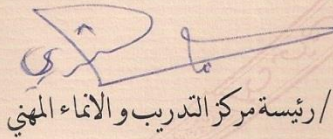 / رئيسة مركز التدريب و الانماء المهني